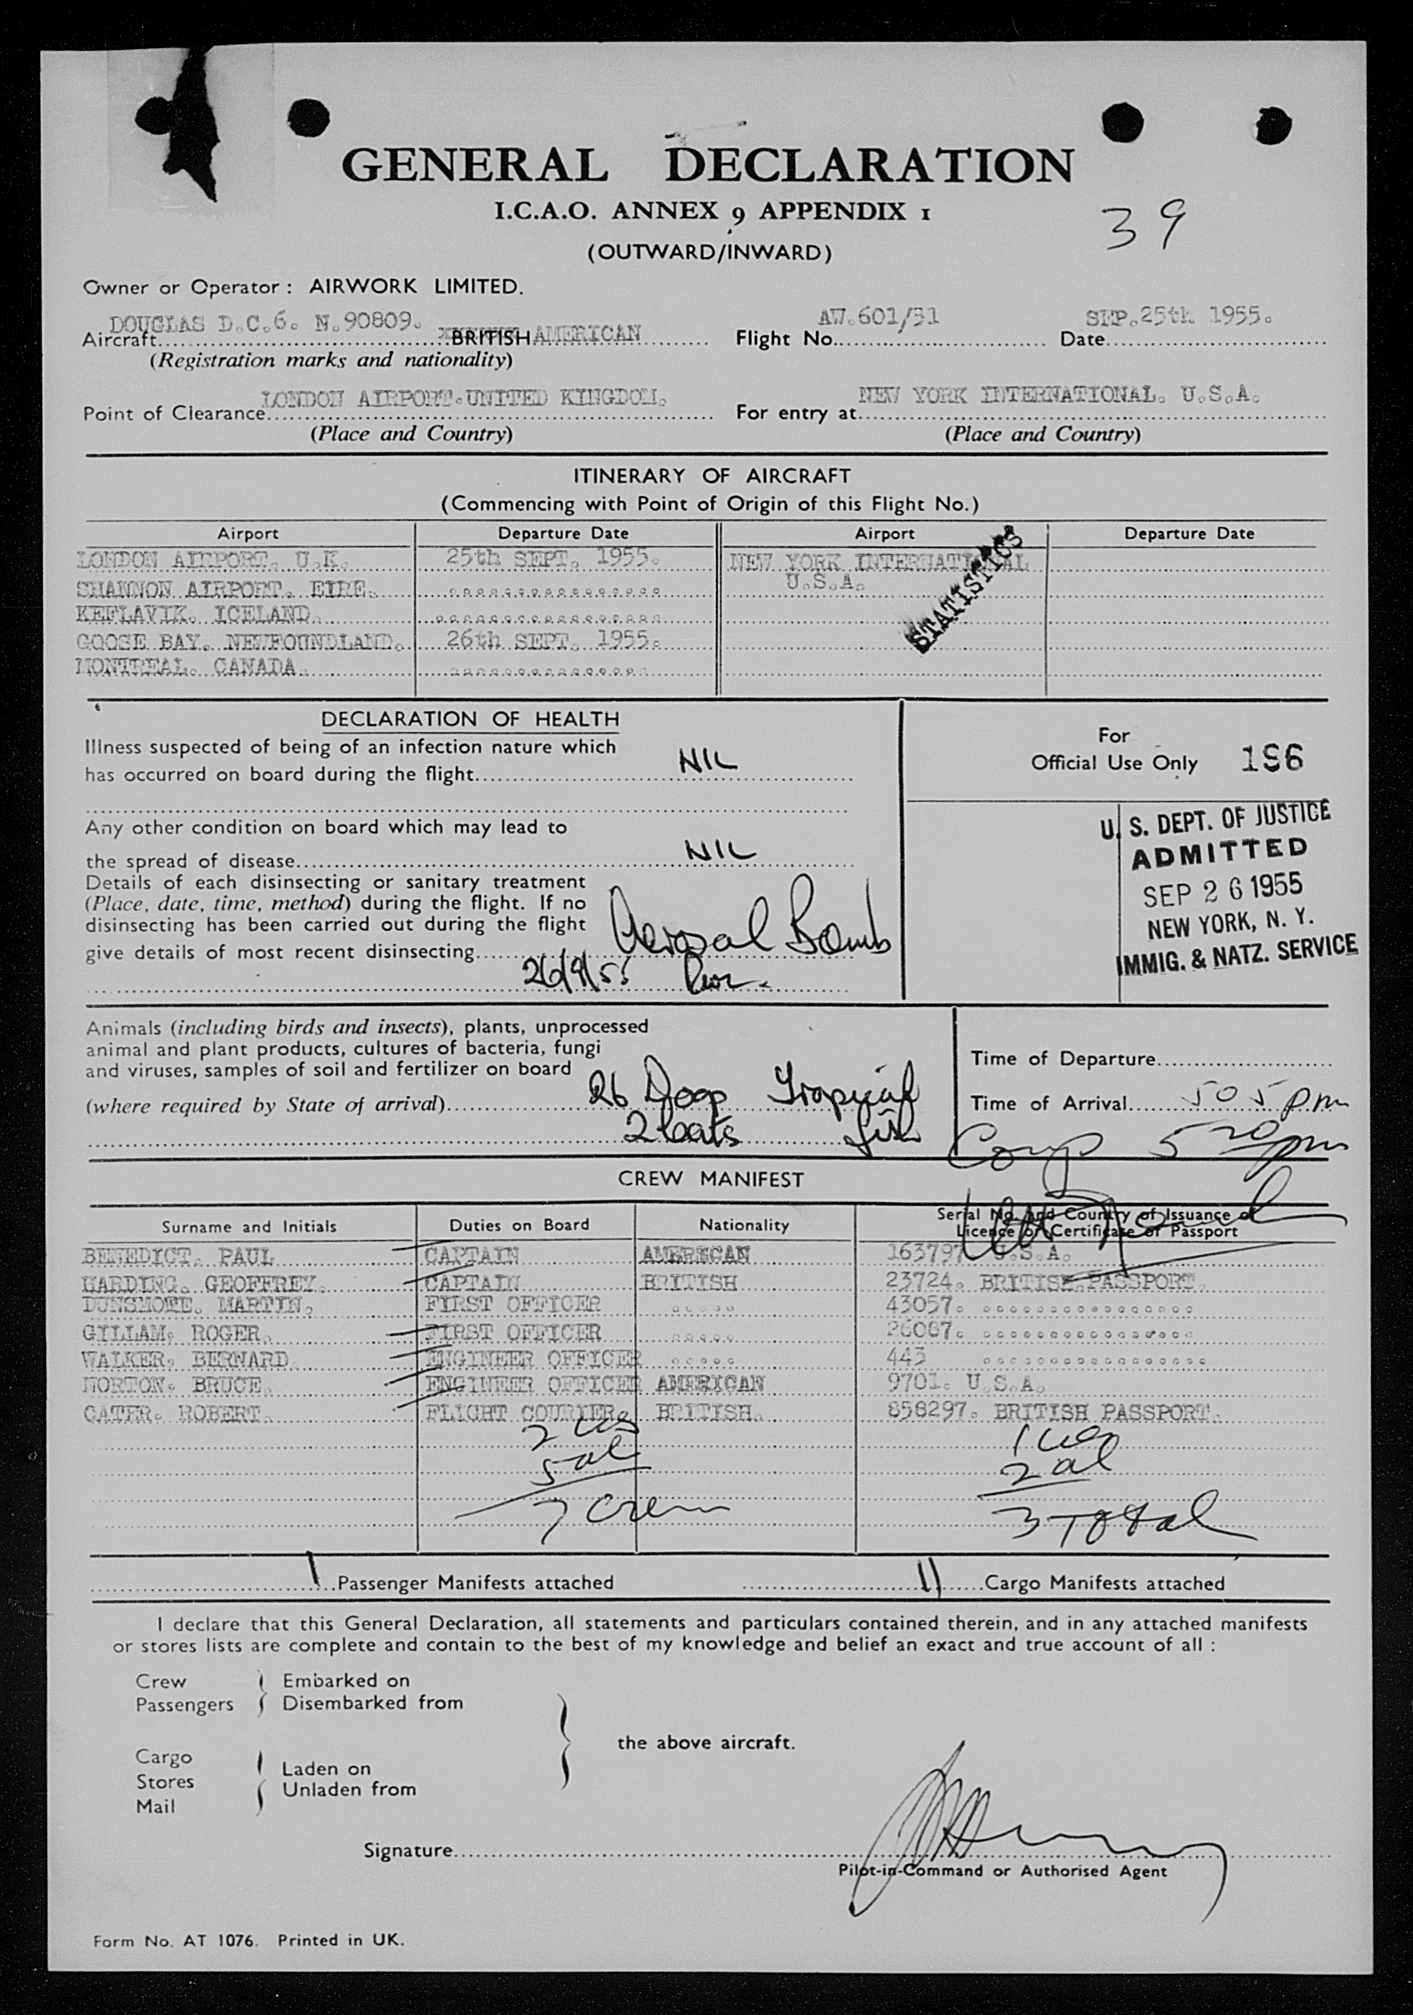 GENERAL DECLARATION
I.C.A.O. ANNEX 9 APPENDIX 1
39
(OUTWARD/INWARD)
Owner or Operator : AIRWORK LIMITED.
Aircraft DOUGLAS D.C.6. N.90809. BRITISH AMERICAN Flight No. AW.601/31 Date SEP.25th 1955.
(Registration marks and nationality)
Point of Clearance LONDON AIRPORT.UNITED KINGDOM. For entry at NEW YORK INTERNATIONAL. U.S.A.
(Place and Country) (Place and Country)
ITINERARY OF AIRCRAFT
(Commencing with Point of Origin of this Flight No.)
Airport Departure Date Airport Departure Date
LONDON AIRPORT. U.K. 25th SEPT. 1955. NEW YORK INTERNATIONAL
SHANNON AIRPORT. EIRE. U.S.A.
KEFLAVIK. ICELAND.
GOOSE BAY. NEWFOUNDLAND. 26th SEPT. 1955.
MONTREAL. CANADA.
STATISTICS
DECLARATION OF HEALTH
Illness suspected of being of an infection nature which
has occurred on board during the flight NIL
Any other condition on board which may lead to
the spread of disease NIL
Details of each disinsecting or sanitary treatment
(Place, date, time, method) during the flight. If no
disinsecting has been carried out during the flight
give details of most recent disinsecting Aerosal Bomb
26/9/55
For
Official Use Only 196
U. S. DEPT. OF JUSTICE
ADMITTED
SEP 26 1955
NEW YORK, N. Y.
IMMIG. & NATZ. SERVICE
Animals (including birds and insects), plants, unprocessed
animal and plant products, cultures of bacteria, fungi
and viruses, samples of soil and fertilizer on board
(where required by State of arrival) 26 Dogs Tropical
2 Cats fish
Time of Departure
Time of Arrival 505 pm
Comp 520 pm
CREW MANIFEST
Surname and Initials Duties on Board Nationality Serial No. and Country of Issuance of
Licence or Certificate or Passport
BENEDICT. PAUL CAPTAIN AMERICAN 163797 U.S.A.
HARDING. GEOFFREY. CAPTAIN BRITISH 23724. BRITISH PASSPORT.
DUNSMORE. MARTIN. FIRST OFFICER 43057.
GILLAM. ROGER. FIRST OFFICER 26067.
WALKER. BERNARD. ENGINEER OFFICER 443
NORTON. BRUCE. ENGINEER OFFICER AMERICAN 9701. U.S.A.
CATER. ROBERT. FLIGHT COURIER. BRITISH. 858297. BRITISH PASSPORT.
2 1
5 al 2 al
7 Crew 3 Total
1 Passenger Manifests attached 11 Cargo Manifests attached
I declare that this General Declaration, all statements and particulars contained therein, and in any attached manifests
or stores lists are complete and contain to the best of my knowledge and belief an exact and true account of all :
Crew Embarked on
Passengers Disembarked from
the above aircraft.
Cargo Laden on
Stores Unladen from
Mail
Signature
Pilot-in-Command or Authorised Agent
Form No. AT 1076. Printed in UK.